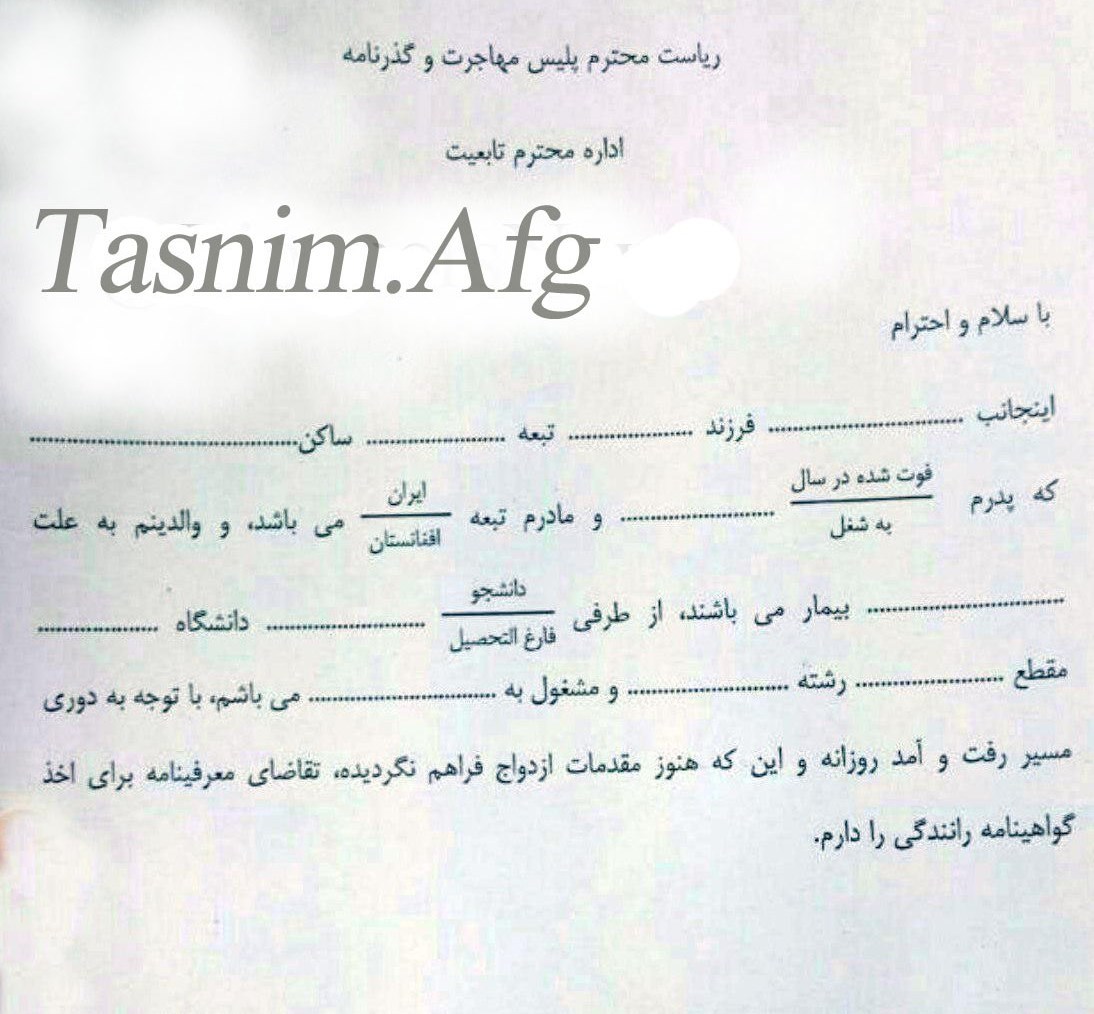 ریاست محترم پلیس مهاجرت و گذرنامه
اداره محترم تابعیت
Tasnim.Afg
با سلام و احترام
اینجانب ................................ فرزند ..................... تبعه ....................... ساکن.............................................
که پدرم فوت شده در سال / به شغل .......................... و مادرم تبعه ایران / افغانستان می باشد، و والدینم به علت
................................. بیمار می باشند، از طرفی دانشجو / فارغ التحصیل .......................... دانشگاه ....................
مقطع ......................... رشته ........................... و مشغول به ............................... می باشم، با توجه به دوری
مسیر رفت و آمد روزانه و این که هنوز مقدمات ازدواج فراهم نگردیده، تقاضای معرفینامه برای اخذ
گواهینامه رانندگی را دارم.